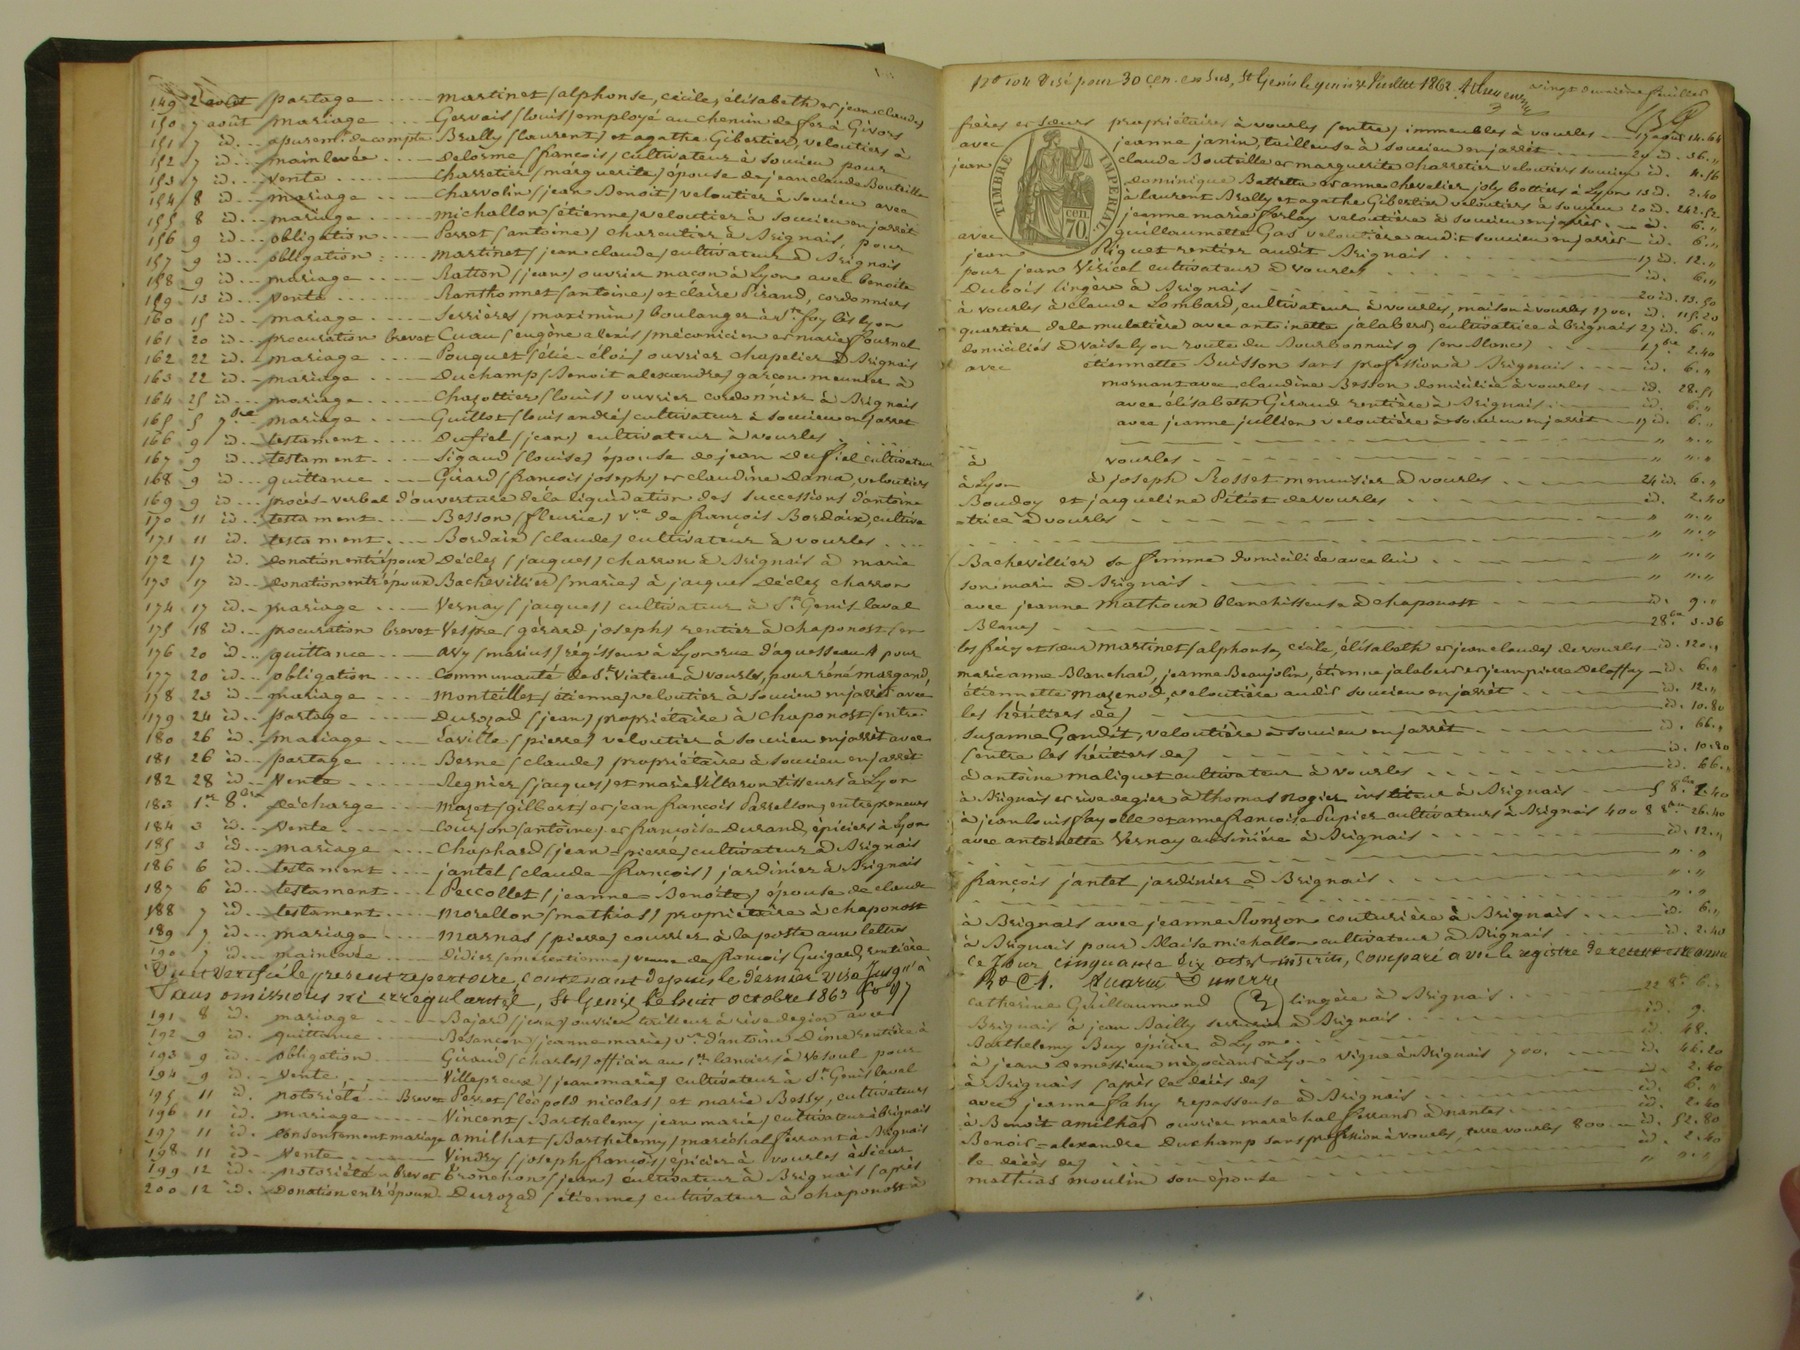 149 2 août partage martinet (alphonse, cécile, élisabeth et jean claude)
150 7 août mariage Gervais (louis) employé au chemin de fer à Givors
151 7 id. apurem.t de compte Brally (laurent) et agathe Gibertier, veloutiers à
152 7 id. mainlevée Delorme (françois) cultivateur à soucieu pour
153 7 id. vente Charretier (marguerite) épouse de jean claude Bouteille
154 8 id. mariage Charvolin (jean Benoit) veloutier à soucieu avec
155 8 id. mariage michallon (étienne) veloutier à soucieu en jarrêt
156 9 id. obligation Perret (antoine) charcutier à Brignais, pour
157 9 id. obligation martinet (jean claude) cultivateur à Brignais
158 9 id. mariage Ratton (jean) ouvrier maçon à Lyon avec benoite
159 13 id. vente Ranthonnet (antoine) et claire Piraud, cordonniers
160 15 id. mariage Serrières (maximin) boulanger à Ste foy lès lyon
161 20 id. procuration brevet Cuau (eugène alexis) mécanicien et marie fournel
162 22 id. mariage Pouquet (élie-éloi) ouvrier chapelier à Brignais
163 22 id. mariage Duchamp (Benoit alexandre) garçon meunier à
164 25 id. mariage Chazottier (louis) ouvrier cordonnier à Brignais
165 5 7bre mariage Guillot (louis andré) cultivateur à soucieu en jarret
166 9 id. testament Dufiel (jean) cultivateur à vourles
167 9 id. testament Sigaud (louise) épouse de jean Dufiel cultivateur
168 9 id. quittance Girard (françois joseph) et claudine Dama, veloutiers
169 9 id. procès-verbal d'ouverture de la liquidation des successions d'antoine
170 11 id. testament Besson (fleurie) Vve de françois Bordaix, cultiva
171 11 id. testament Bordaix (claude) cultivateur à vourles
172 17 id. donation entr'époux Déclez (jacques) charron à Brignais à marie
173 17 id. donation entr'époux Bachevillier (marie) à jacques Déclez charron
174 17 id. mariage Vernay (jacques) cultivateur à St Genis laval
175 18 id. procuration brevet Vespre (gérard joseph) rentier à chaponost (en
176 20 id. quittance Arry (marius) régisseur à lyon rue d'aguesseau 4 pour
177 20 id. obligation Communauté de St Viateur à vourles, pour réné margand,
178 23 id. mariage Monteillet (étienne) veloutier à soucieu en jarrêt avec
179 24 id. partage Durozad (jean) propriétaire à chaponost (entre
180 26 id. mariage Laville (pierre) veloutier à soucieu en jarrêt avec
181 26 id. partage Berne (claude) propriétaire à soucieu en jarrêt
182 28 id. vente Regnier (jacques) et marie Villaron tisseurs à Lyon
183 1er 8bre décharge Mazet (gilbert) et jean françois Perrellon, entrepreneurs
184 3 id. vente Courjon (antoine) et françoise Durand, épiciers à lyon
185 3 id. mariage Chaphard (jean-pierre) cultivateur à Brignais
186 6 id. testament jantet (claude-françois) jardinier à Brignais
187 6 id. testament Percollet (jeanne-Benoite) épouse de claude
188 7 id. testament Morellon (mathias) propriétaire à chaponost
189 7 id. mariage marnas (pierre) courrier à la poste aux lettres
190 7 id. mainlevée Didier (émerentienne) veuve de françois Guigard, rentière
Vu et vérifié le présent répertoire, contenant depuis le dernier visa jusqu'à
sans omissions ni irrégularité, St Genis le huit octobre 1863
191 8 id. mariage Bajard (jean) ouvrier tuilleur à rive de gier avec
192 9 id. quittance Besançon (jeanne marie) ve d'antoine Dime rentière à
193 9 id. obligation Giraud (charles) officier au 1er lanciers à Vesoul pour
194 9 id. vente Villepreux (jean marie) cultivateur à St Genis laval
195 11 id. notoriété Brevet Perret (léopold nicolas) et marie Bessy, cultivateurs
196 11 id. mariage Vincent (Barthelemy jean marie) cultivateur à brignais
197 11 id. consentement mariage amilhat (Barthelemy) maréchal ferrant à Brignais
198 11 id. Vente Vindry (joseph françois) épicier à vourles à sieur
199 12 id. notoriété brevet Bronchon (jean) cultivateur à Brignais (après
200 12 id. Donation entr'époux Durozad (étienne) cultivateur à chaponost à
No 104 Visé pour 30 cen. en sus, St Genis le quinze Juillet 1862
vingt deuxième feuillet
TIMBRE IMPERIAL
70 cen.
frères et sœurs propriétaires à vourles (entre) immeubles à vourles 17 août 14.64
avec jeanne janin, tailleuse à soucieu en jarrêt 20 id. 36."
jean claude Bouteille et marguerite charretier veloutiers soucieu id. 4.16
dominique Battetta et anne chevalier joly bottiers à Lyon 13 id. 2.40
à laurent Brally et agathe Gibertier veloutiers à soucieu 20 id. 242.52
avec jeanne marie forlay veloutière à soucieu en jarrêt id. 6."
guillaumette Gas veloutière audit soucieu en jarrêt id. 6."
jean Riquet rentier audit Brignais 17 id. 12."
pour jean Viricel cultivateur à vourles id. 6."
Dubois lingère à Brignais 20 id. 13.50
à vourles à claude Lombard, cultivateur à vourles, maison à vourles 1700. id. 115.20
quartier de la mulatière avec antoinette jalabert, cultivatrice à brignais 27 id. 6."
domiciliés à Vaise lyon route du Bourbonnais 9 (en Blanc) 1 7bre 2.40
avec étiennette Buisson sans profession à Brignais id. 6."
mornant avec claudine Besson domiciliée à vourles id. 28.51
avec élisabeth Giraud rentière à Brignais id. 6."
avec jeanne jullien veloutière à soucieu en jarrêt 17 id. 6."
" "."
à vourles " "."
à Lyon à joseph Rosset menuisier à vourles 24 id. 6."
Boudoy et jacqueline Pitiot de vourles id. 2.40
-trice à vourles " "."
" "."
Bachevillier sa femme domiciliée avec lui " "."
son mari à Brignais " "."
avec jeanne Mathoux blanchisseuse à chaponost id. 9."
Blanc) 28 7bre 3.36
les frères et sœur martinet (alphonse, cécile, élisabeth et jean claude) de vourles id. 120."
marie anne Blanchard, jeanne Beaujolin, étienne jalabert et jean pierre Delaffay id. 6."
étiennette mazenod, veloutière audit soucieu en jarrêt id. 12."
les héritiers de) id. 10.80
Suzanne Gondit, veloutière à soucieu en jarrêt id. 66."
(entre les héritiers de) id. 10.80
à antoine maliquet cultivateur à vourles id. 66."
à Brignais et rive de gier à thomas Rogier instituteur à Brignais 5 8bre 2.40
à jean louis fayolle et anne françoise Dupier cultivateurs à Brignais 400 8 8bre 26.40
avec antoinette Vernay cuisinière à Brignais id. 12."
" "
françois jantet jardinier à Brignais " "
" "
à Brignais avec jeanne Ronzon couturière à Brignais id. 6."
à Brignais pour Blaise michallon cultivateur à Brignais id. 2.40
ce jour cinquante six actes inscrits, comparé avec le registre de recette
catherine Guillaumond lingère à Brignais 22 8bre 6."
Brignais à jean Bailly serrurier à Brignais id. 9.
Barthelemy Buy épicier à Lyon id. 48.
à jean Demestieux négociant à Lyon vigne à Brignais 700. id. 46.20
à Brignais (après le décès de) id. 2.40
avec jeanne fahy repasseuse à Brignais id. 6."
à Benoit amilhat ouvrier maréchal ferrant à nantes id. 2.40
Benoit-alexandre Duchamp sans profession à vourles, terre vourles 800 id. 52.80
le décès de) id. 2.40
mathias moulin son épouse " "."